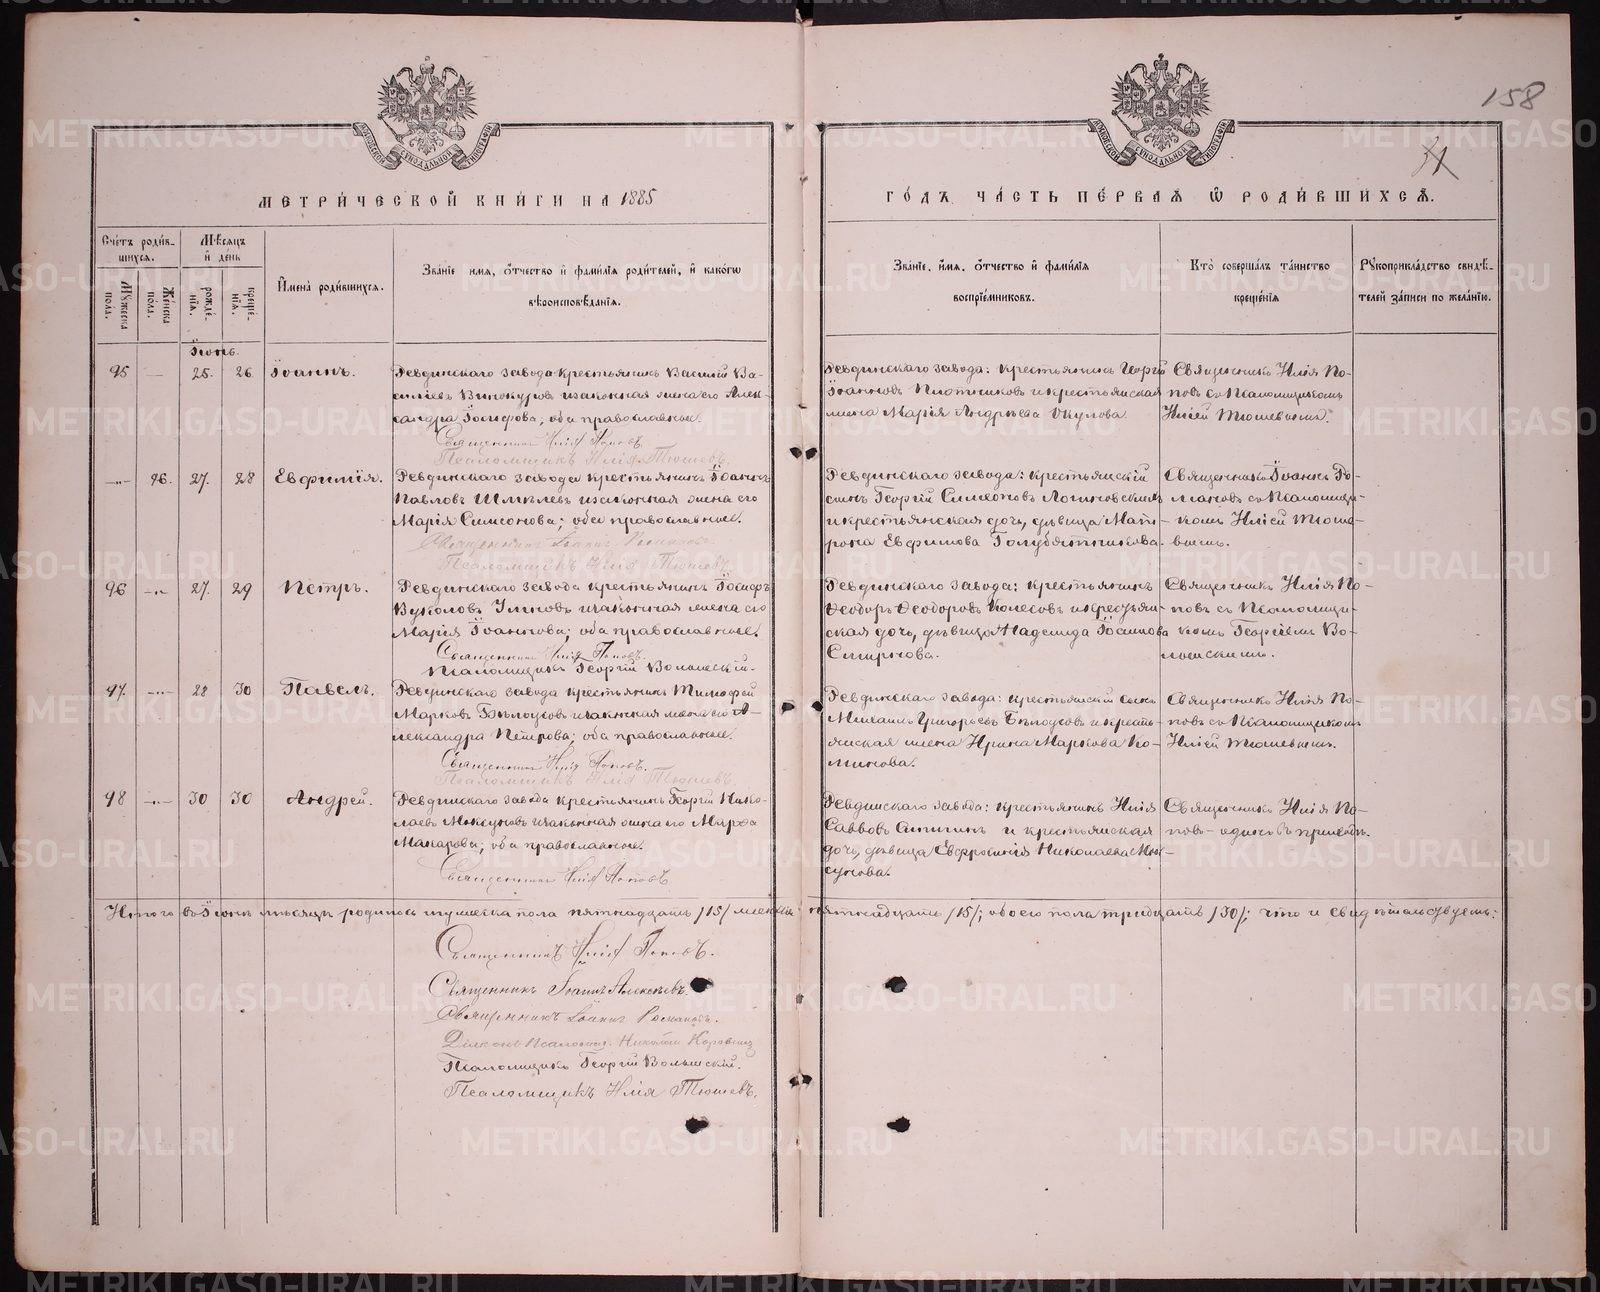 158
31
МОСКОВСКОЙ СУНОДАЛЬНОЙ ТИПОГРАФІИ
МОСКОВСКОЙ СУНОДАЛЬНОЙ ТИПОГРАФІИ
МЕТРИ́ЧЕСКОЙ КНИ́ГИ НА 1885
ГО́ДЪ ЧА́СТЬ ПЕ́РВАЯ Ѿ РОДИ́ВШИХСЯ.
Сче́тъ роди́в-
шихся.
Мѣ́сяцъ
и҆ де́нь
Му́жеска
пола.
Же́нска
по́ла.
рожде́-
нія.
креще́-
нія.
И҆мена̀ роди́вшихся.
Зва́ніе имя, о҆́тчество и҆ фами́лія роди́телей, и҆ како́гѡ
вѣроисповѣ́данія.
Зва́ніе, и҆́мя, о҆́тчество и҆ фами́лія
воспріе́мниковъ.
Кто̀ соверша́лъ та́инство
креще́нія
Рукоприкла́дство свидѣ́-
телей за́писи по жела́нію.
Іюнь.
95 — 25. 26. Іоаннъ.
Ревдинскаго завода крестьянинъ Василій Ва-
сильевъ Винокуровъ и законная жена его Алек-
сандра Іосифова; оба православные.
Священникъ Илія Поповъ.
Псаломщикъ Илія Тюшевъ.
Ревдинскаго завода: крестьянинъ Георгій
Іоанновъ Плотниковъ и крестьянская
жена Марія Андреева Окулова
Священникъ Илія По-
повъ съ Псаломщикомъ
Иліей Тюшевымъ.
—"— 96. 27. 28 Евфимія.
Ревдинскаго завода крестьянинъ Іоаннъ
Павловъ Шмелевъ и законная жена его
Марія Симеонова; оба православные.
Священникъ Іоаннъ Романовъ.
Псаломщикъ Илія Тюшевъ
Ревдинскаго завода: крестьянскій
сынъ Георгій Симеоновъ Логиновскихъ
и крестьянская дочь, дѣвица Мат-
рона Евфимова Голубятникова.
Священникъ Іоаннъ Ро-
мановъ съ Псаломщи-
комъ Иліей Тюше-
вымъ.
96 —"— 27. 29 Петръ.
Ревдинскаго завода крестьянинъ Іосифъ
Вуколовъ Умновъ и законная жена его
Марія Іоаннова; оба православные.
Священникъ Илія Поповъ.
Псаломщикъ Георгій Волынскій.
Ревдинскаго завода: крестьянинъ
Ѳеодоръ Ѳеодоровъ Колесовъ и крестьян-
ская дочь, дѣвица Надежда Іосифова
Смирнова.
Священникъ Илія По-
повъ съ Псаломщи-
комъ Георгіемъ Во-
лынскимъ.
97 —"— 28 30 Павелъ.
Ревдинскаго завода крестьянинъ Тимофей
Марковъ Бѣлоусовъ и законная жена его А-
лександра Петрова; оба православные.
Священникъ Илія Поповъ.
Псаломщикъ Илія Тюшевъ
Ревдинскаго завода: крестьянскій сынъ
Михаилъ Григорьевъ Бѣлоусовъ и кресть-
янская жена Ирина Маркова Ко-
минова.
Священникъ Илія По-
повъ съ Псаломщикомъ
Иліей Тюшевымъ.
98 —"— 30 30 Андрей.
Ревдинскаго завода крестьянинъ Георгій Нико-
лаевъ Моксуновъ и законная жена его Марѳа
Макарова; оба православные.
Священникъ Илія Поповъ
Ревдинскаго завода: крестьянинъ Илія
Саввовъ и крестьянская
дочь, дѣвица Евфросинія Николаева Мок-
сунова.
Священникъ Илія По-
повъ- одинъ въ приходѣ.
Итого въ Іюнѣ мѣсяцѣ родилось мужеска пола пятнадцать /15/ женска пятнадцать /15/; обоего пола тридцать /30/; что и свидѣтельствуемъ:
Священникъ Илія Поповъ.
Священникъ Іоаннъ Алексѣевъ.
Священникъ Іоаннъ Романовъ.
Діаконъ Псаломщ. Николай Коровинъ
Псаломщикъ Георгій Волынскій.
Псаломщикъ Илія Тюшевъ.
METRIKI.GASO-URAL.RU